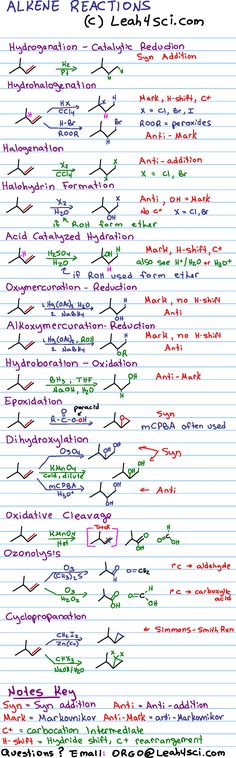 ALKENE REACTIONS
(C) Leah4sci.com
Hydrogenation - Catalytic Reduction
X₂
Pt
Syn Addition
Hydrohalogenation
HX
CCl₄
H-Br
ROOR
Mark, H-shift, C+
X = Cl, Br, I
ROOR = peroxides
Anti-Mark
Halogenation
X₂
CCl₄
Anti-addition
X = Cl, Br
Halohydrin Formation
X₂
H₂O
if ROH form ether
Anti, OH = Mark
No C+ X = Cl, Br
Acid Catalyzed Hydration
H₂SO₄
H₂O
if ROH used form ether
Mark, H-shift, C+
also see H⁺/H₂O or H₃O⁺
Oxymercuration - Reduction
1 Hg(OAc)₂ H₂O
2 NaBH₄
Mark, no H-shift
Anti
Alkoxymercuration-Reduction
1 Hg(OAc)₂, ROH
2 NaBH₄
Mark, no H-shift
Anti
Hydroboration - Oxidation
BH₃, THF
NaOH, H₂O
Anti-Mark
Epoxidation
peracid
R-C-O-OH
Syn
mCPBA often used
Dihydroxylation
OsO₄
KMnO₄
Cold, dilute
mCPBA
H₃O⁺
Syn
Anti
Oxidative Cleavage
KMnO₄
Hot
Ozonolysis
O₃
(CH₃)₂S
1°C → aldehyde
O₃
H₂O₂
1°C → carboxylic acid
Cyclopropanation
CH₂I₂
Zn(Cu)
Simmons-Smith Rxn
CHX₃
NaOH/H₂O
Notes Key
Syn = Syn addition Anti = Anti-addition
Mark = Markovnikov Anti-Mark = anti-Markovnikov
C+ = carbocation Intermediate
H-shift = Hydride shift, C+ rearrangement
Questions? Email: ORGO@Leah4sci.com